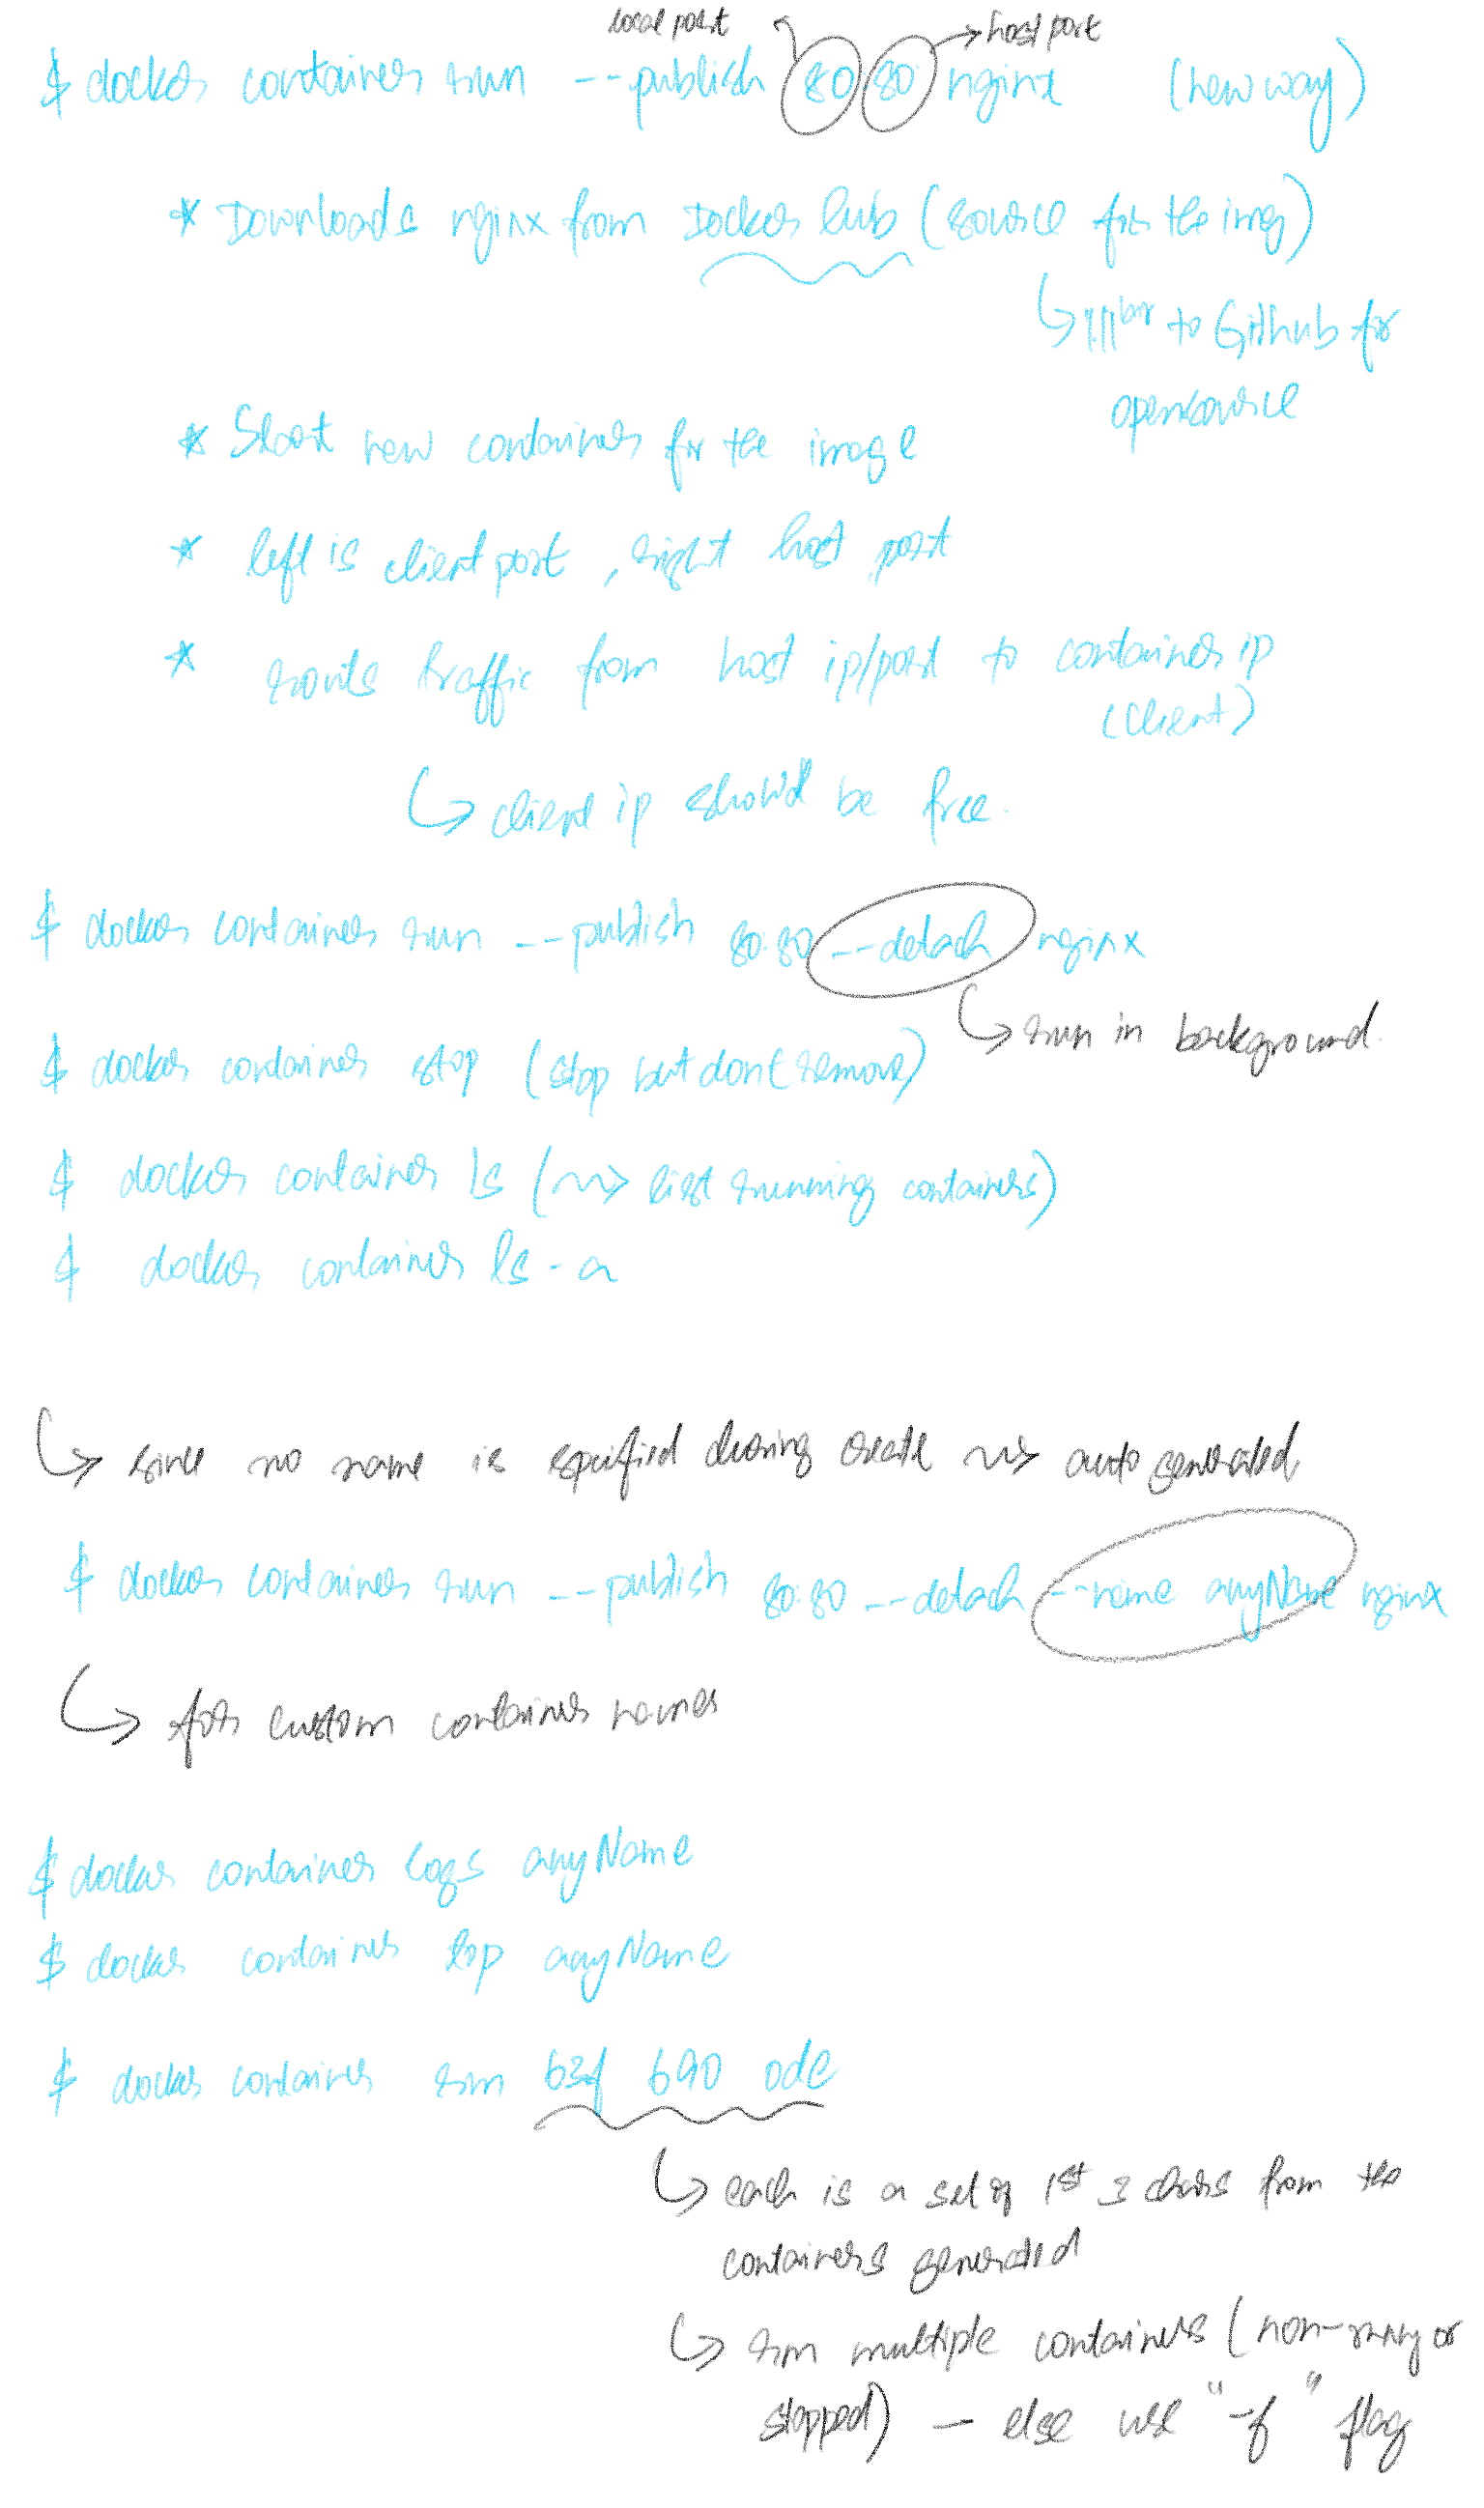 local port host port
$ docker container run --publish 80:80 nginx (new way)
* Downloads nginx from Docker hub (source for the img)
to Github for
opensource
* Start new container for the image
* left is client port, right host port
* routs traffic from host ip/port to container ip
(client)
client ip should be free.
$ docker container run --publish 80:80 --detach nginx
run in background.
$ docker container stop (stop but dont remove)
$ docker container ls (~> list running containers)
$ docker container ls -a
since no name is specified during create ~> auto generated
$ docker container run --publish 80:80 --detach --name anyName nginx
for custom container names
$ docker container logs anyName
$ docker container top anyName
$ docker container rm 63f 690 ode
each is a set of 1st 3 chars from the
containers generated
rm multiple containers (non- or
stopped) - else use "-f" flag